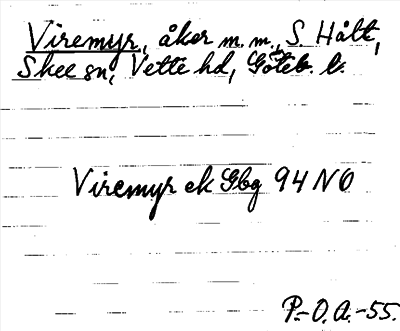 Viremyr, åker m.m., S. Hålt,
Skee sn, Vette hd, Göteb. l.
Viremyr ek Gbg 94 NO
P.-O. A. -55.